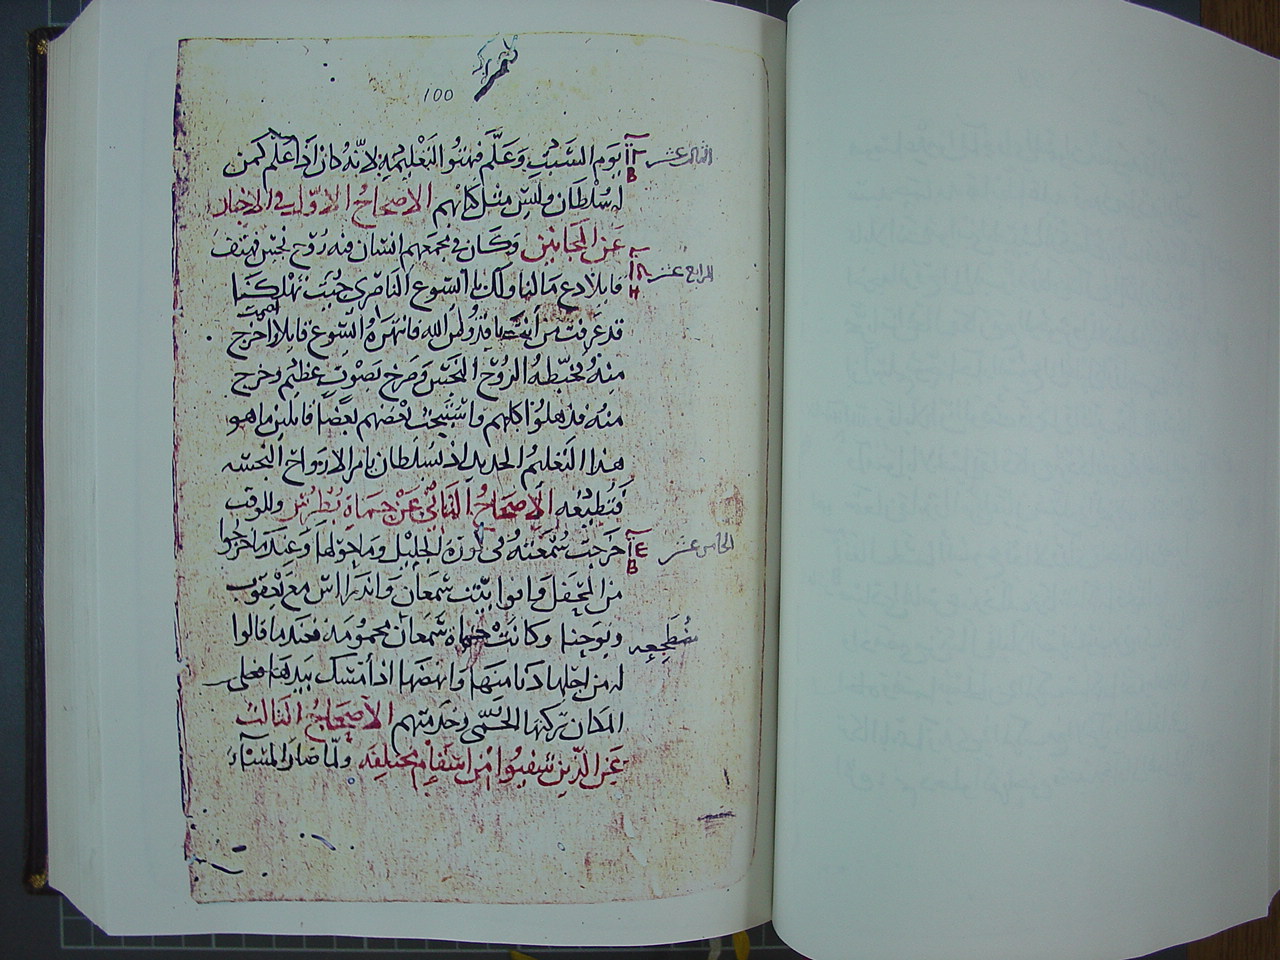 100
يوم السبت وعلم فبهتوا لتعليمه لانه كان اذا علم كمن
الثالث عشر
له سلطان وليس مثل كتابهم الاصحاح الاول في الاخبار
عن المجانين وكان في مجمعهم انسان فيه روح نجس فهتف
الرابع عشر
قايلا دع ما لنا ولك يا ايسوع الناصري جيت تهلكنا
قد عرفت من انت يا قدوس الله فانتهره ايسوع قايلا اخرج
منه فخبطه الروح النجس وصرخ بصوت عظيم وخرج
منه فذهلوا كلهم بعضهم بعضا قايلين ما هو
هذا التعليم الجديد اذ بسلطان يامر الارواح النجسه
فتطيعه الاصحاح الثاني عن حماة بطرس وللوقت
خرجت سمعته في كورة الجليل وما حولها وعند ما خرجوا
الخامس عشر
من المحفل وافوا بيت سمعان واندراس مع يعقوب
ويوحنا وكانت حماه سمعان محمومة فعند ما قالوا
مضطجعه
له من اجلها دنا منها وانهضها اذ امسك بيدها فعلى
المكان تركتها الحمى وخدمتهم الاصحاح الثالث
عن الذين شفيوا من اسقام مختلفه ولما صار المساء